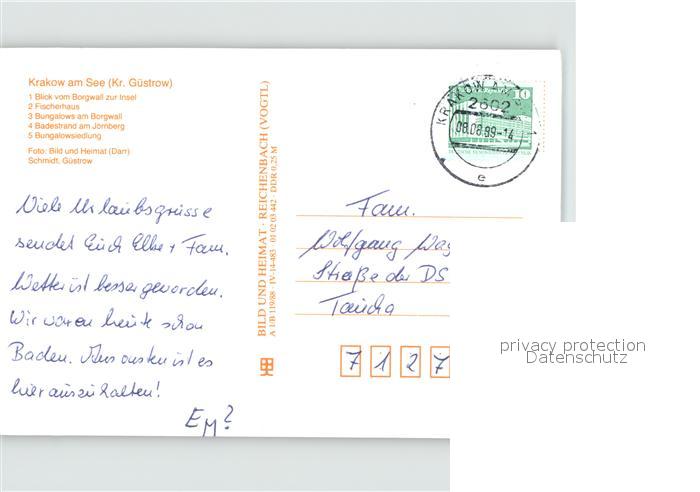 Krakow am See (Kr. Güstrow)
1 Blick vom Borgwall zur Insel
2 Fischerhaus
3 Bungalows am Borgwall
4 Badestrand am Jörnberg
5 Bungalowsiedlung
Foto: Bild und Heimat (Darr)
Schmidt, Güstrow
Viele Urlaubsgrüsse
sendet Euch Elke + Fam.
Wetter ist besser geworden.
Wir waren heute schon
Baden. Ansonsten ist es
hier auszuhalten!
EM?
BILD UND HEIMAT · REICHENBACH (VOGTL)
A 1/B 119/88 · IV-14-483 · 01 02 03 442 · DDR 0,25 M
10
KRAKOW AM
2602
08.08.89-14
e
Fam.
Wolfgang
Straße der DS
Taucha
7 1 2 7
privacy protection
Datenschutz